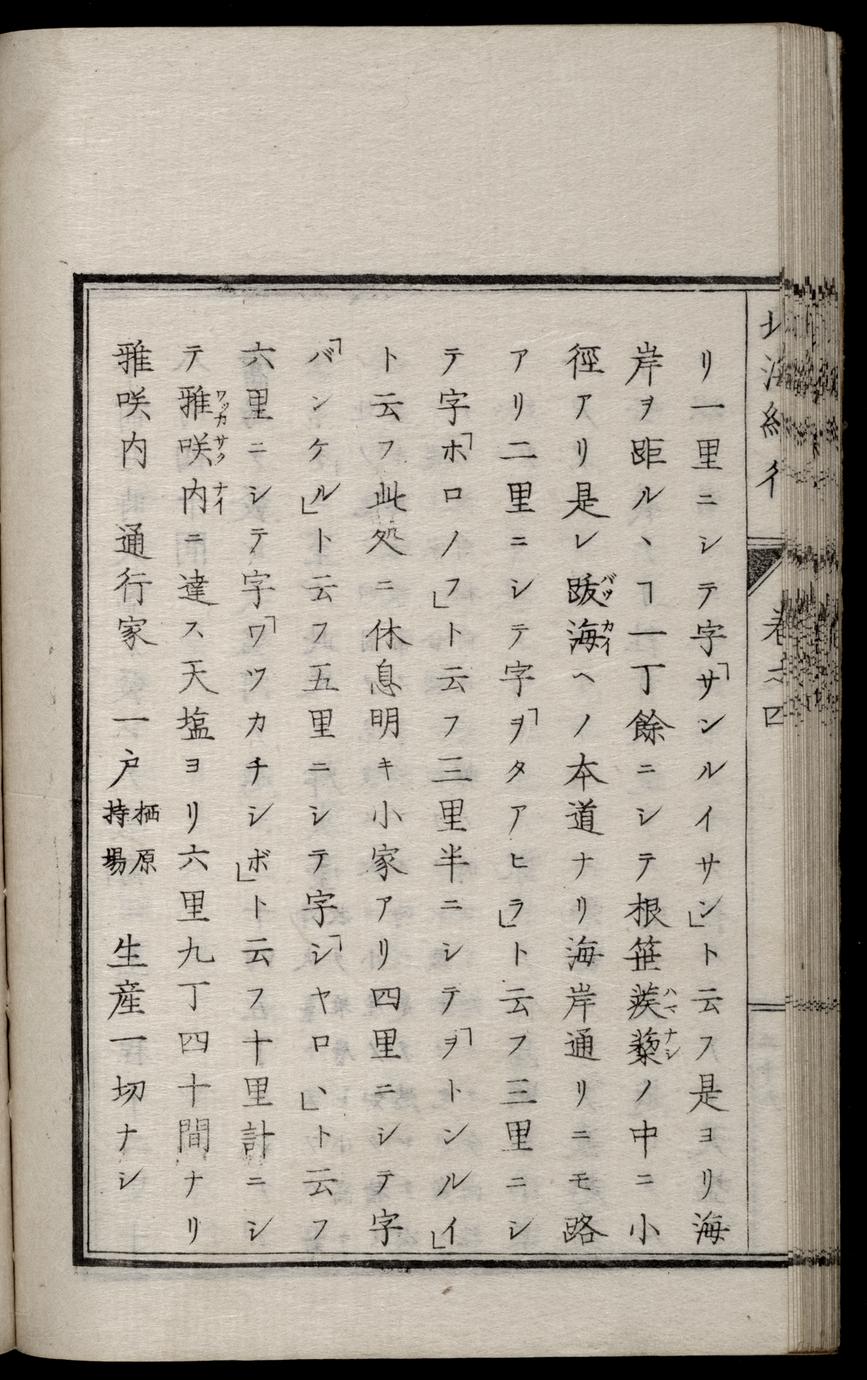 リ一里ニシテ字「サンルイサン」ト云フ是ヨリ海
岸ヲ距ルヽヿ一丁餘ニシテ根笹蒺蔾ノ中ニ小
ハマナシ
徑アリ是レ跋海ヘノ本道ナリ海岸通リニモ路
バツカイ
アリ二里ニシテ字「ヲタアヒラ」ト云フ三里ニシ
テ字「ホロノフ」ト云フ三里半ニシテ「ヲトンルイ」
ト云フ此処ニ休息明キ小家アリ四里ニシテ字
「バンケル」ト云フ五里ニシテ字「シヤロヽ」ト云フ
六里ニシテ字「ワツカチシボ」ト云フ十里計ニシ
テ雅咲内ニ達ス天塩ヨリ六里九丁四十間ナリ
ワッカサクナイ
雅咲内 通行家 一戸 栖原持場 生産一切ナシ